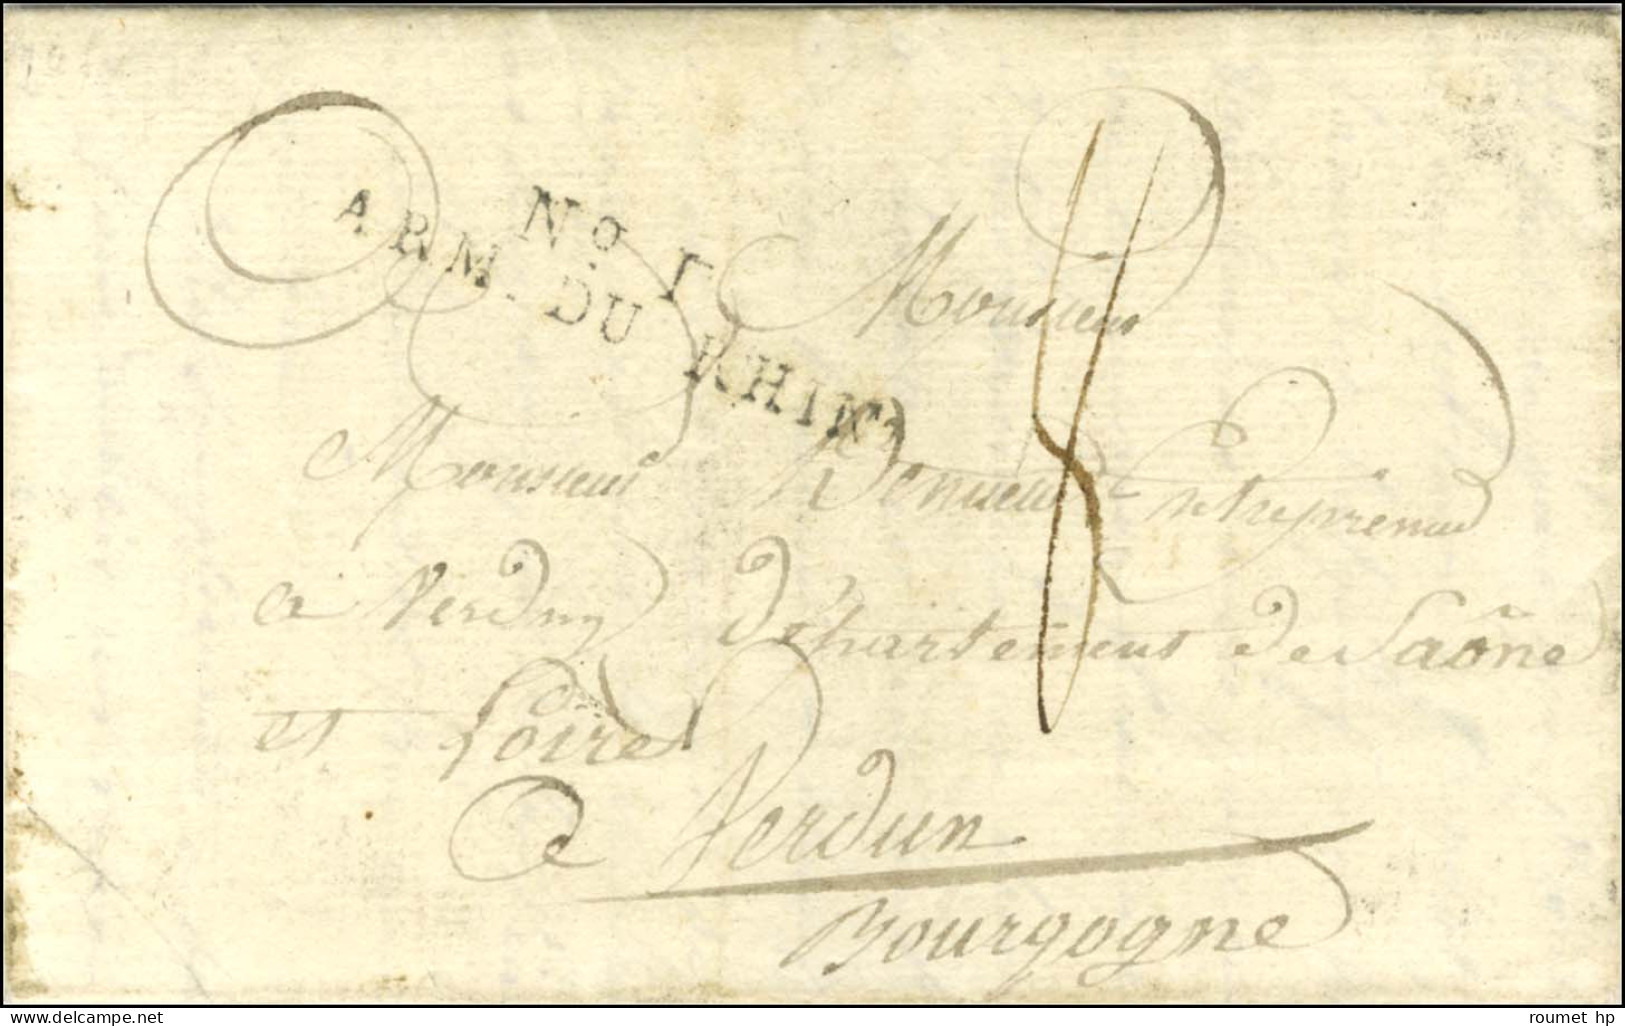 No 1
ARM. DU RHIN
8
Monsieur
Monsieur Entrepreneur
a Verdun Département de Saône
et Loire
a Verdun
Bourgogne
roumet hp
www.delcampe.net